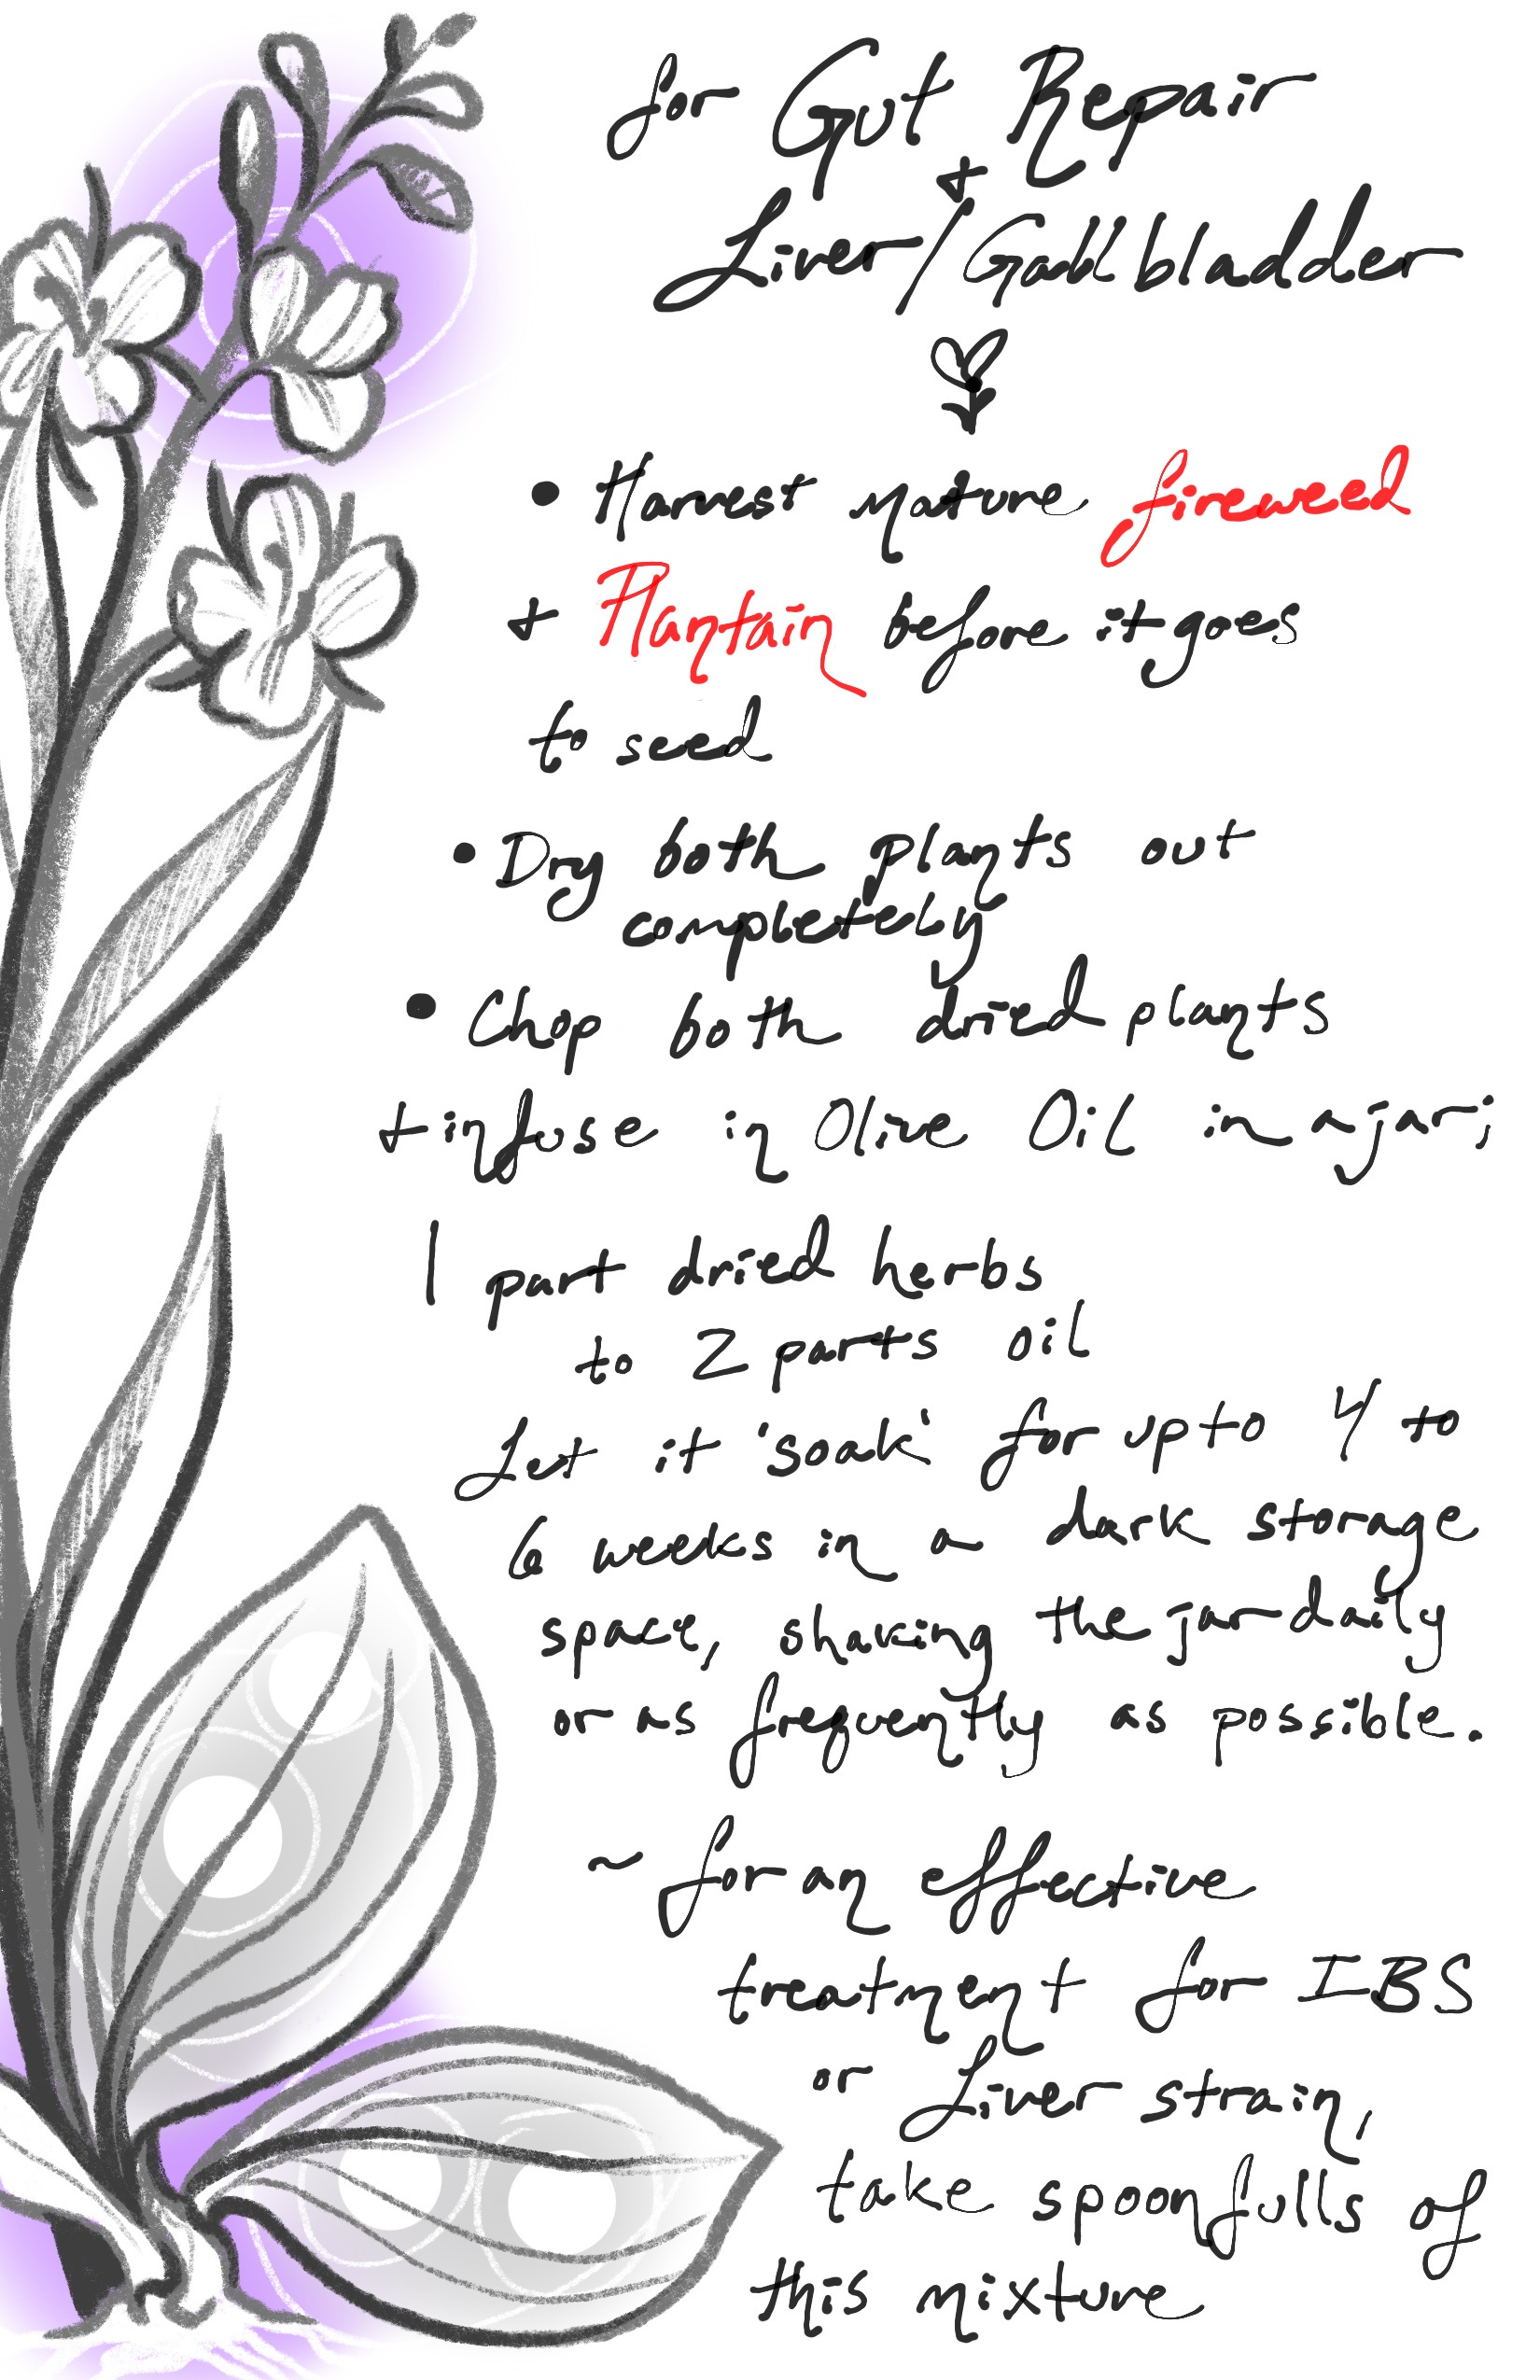 for Gut Repair
+
Liver/Gallbladder
• Harvest mature fireweed
+ Plantain before it goes
to seed
• Dry both plants out
completely
• Chop both dried plants
+ infuse in Olive Oil in a jar;
1 part dried herbs
to 2 parts oil
Let it 'soak' for up to 4 to
6 weeks in a dark storage
space, shaking the jar daily
or as frequently as possible.
~ for an effective
treatment for IBS
or Liver strain,
take spoonfulls of
this mixture